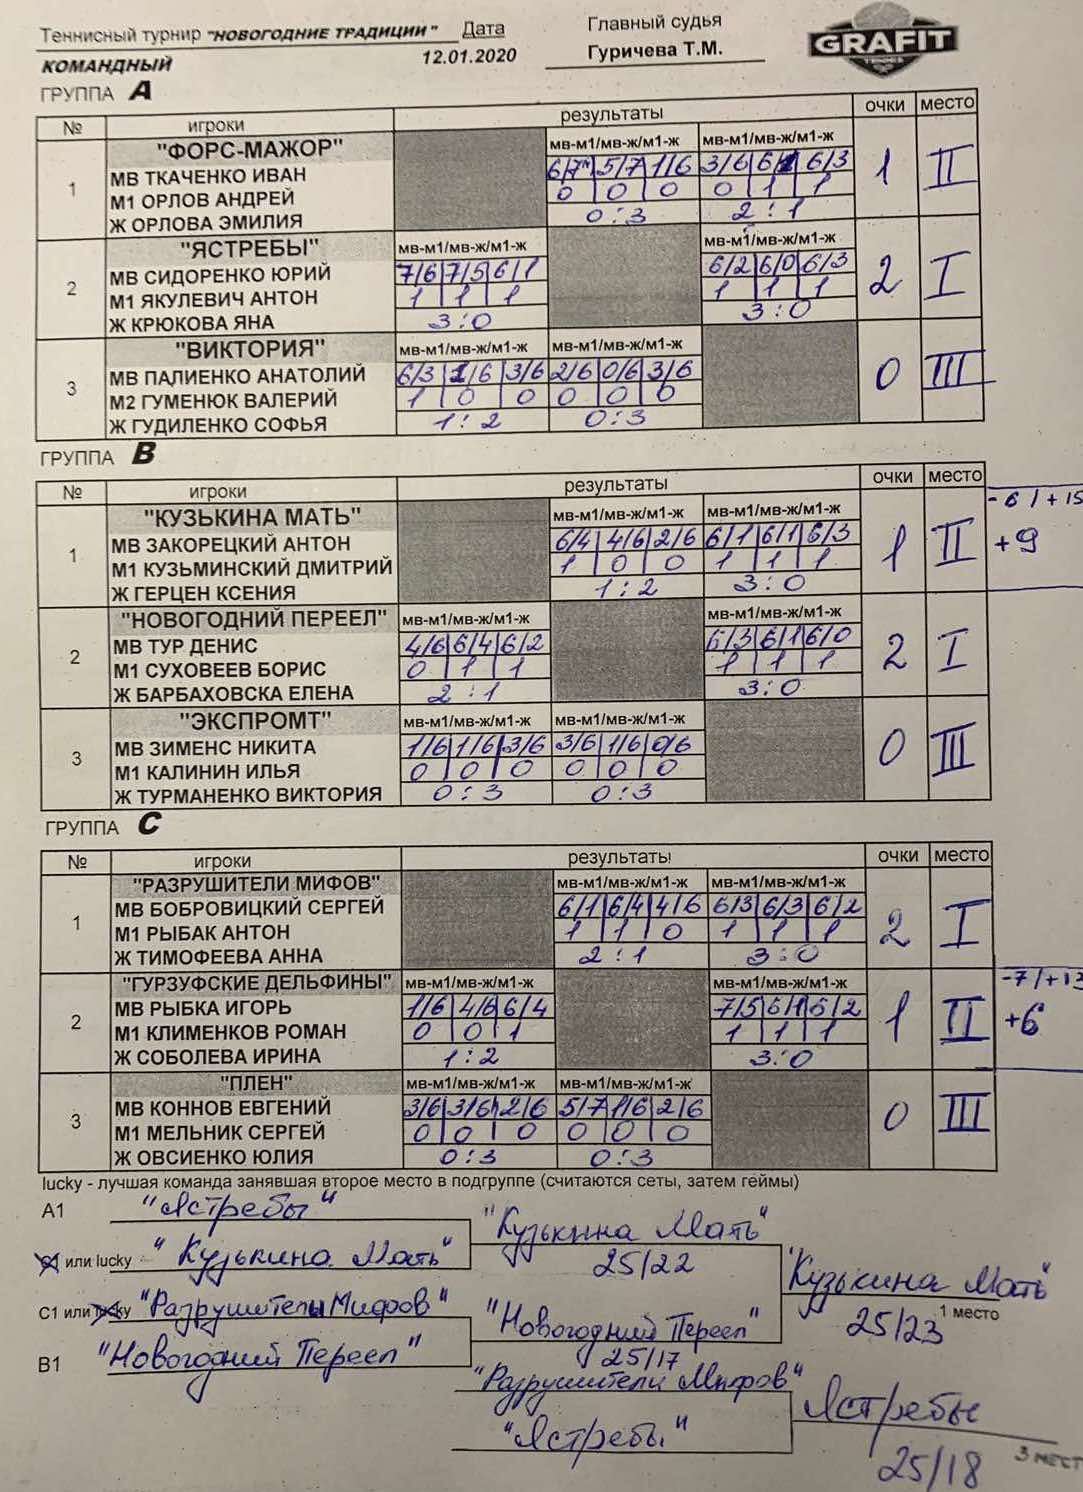 Теннисный турнир "НОВОГОДНИЕ ТРАДИЦИИ" Дата Главный судья
КОМАНДНЫЙ 12.01.2020 Гуричева Т.М.
GRAFIT
TENNIS
ГРУППА А
№ игроки результаты очки место
"ФОРС-МАЖОР" мв-м1/мв-ж/м1-ж мв-м1/мв-ж/м1-ж
1 МВ ТКАЧЕНКО ИВАН 6/7 5/7 1/6 3/6 6/1 6/3 1 II
М1 ОРЛОВ АНДРЕЙ 0 0 0 0 1 1
Ж ОРЛОВА ЭМИЛИЯ 0:3 2:1
"ЯСТРЕБЫ" мв-м1/мв-ж/м1-ж мв-м1/мв-ж/м1-ж
2 МВ СИДОРЕНКО ЮРИЙ 7/6 7/5 6/1 6/2 6/0 6/3 2 I
М1 ЯКУЛЕВИЧ АНТОН 1 1 1 1 1 1
Ж КРЮКОВА ЯНА 3:0 3:0
"ВИКТОРИЯ" мв-м1/мв-ж/м1-ж мв-м1/мв-ж/м1-ж
3 МВ ПАЛИЕНКО АНАТОЛИЙ 6/3 1/6 3/6 2/6 0/6 3/6 0 III
М2 ГУМЕНЮК ВАЛЕРИЙ 1 0 0 0 0 0
Ж ГУДИЛЕНКО СОФЬЯ 1:2 0:3
ГРУППА В
№ игроки результаты очки место
-6/+15
"КУЗЬКИНА МАТЬ" мв-м1/мв-ж/м1-ж мв-м1/мв-ж/м1-ж
1 МВ ЗАКОРЕЦКИЙ АНТОН 6/4 4/6 2/6 6/1 6/1 6/3 1 II +9
М1 КУЗЬМИНСКИЙ ДМИТРИЙ 1 0 0 1 1 1
Ж ГЕРЦЕН КСЕНИЯ 1:2 3:0
"НОВОГОДНИЙ ПЕРЕЕЛ" мв-м1/мв-ж/м1-ж мв-м1/мв-ж/м1-ж
2 МВ ТУР ДЕНИС 4/6 6/4 6/2 6/3 6/1 6/0 2 I
М1 СУХОВЕЕВ БОРИС 0 1 1 1 1 1
Ж БАРБАХОВСКА ЕЛЕНА 2:1 3:0
"ЭКСПРОМТ" мв-м1/мв-ж/м1-ж мв-м1/мв-ж/м1-ж
3 МВ ЗИМЕНС НИКИТА 1/6 1/6 3/6 3/6 1/6 0/6 0 III
М1 КАЛИНИН ИЛЬЯ 0 0 0 0 0 0
Ж ТУРМАНЕНКО ВИКТОРИЯ 0:3 0:3
ГРУППА С
№ игроки результаты очки место
"РАЗРУШИТЕЛИ МИФОВ" мв-м1/мв-ж/м1-ж мв-м1/мв-ж/м1-ж
1 МВ БОБРОВИЦКИЙ СЕРГЕЙ 6/1 6/4 4/6 6/3 6/3 6/2 2 I
М1 РЫБАК АНТОН 1 1 0 1 1 1
Ж ТИМОФЕЕВА АННА 2:1 3:0
"ГУРЗУФСКИЕ ДЕЛЬФИНЫ" мв-м1/мв-ж/м1-ж мв-м1/мв-ж/м1-ж -7/+13
2 МВ РЫБКА ИГОРЬ 1/6 4/6 6/4 7/5 6/1 6/2 1 II +6
М1 КЛИМЕНКОВ РОМАН 0 0 1 1 1 1
Ж СОБОЛЕВА ИРИНА 1:2 3:0
"ПЛЕН" мв-м1/мв-ж/м1-ж мв-м1/мв-ж/м1-ж
3 МВ КОННОВ ЕВГЕНИЙ 3/6 3/6 2/6 5/7 1/6 2/6 0 III
М1 МЕЛЬНИК СЕРГЕЙ 0 0 0 0 0 0
Ж ОВСИЕНКО ЮЛИЯ 0:3 0:3
lucky - лучшая команда занявшая второе место в подгруппе (считаются сеты, затем геймы)
А1 "Ястребы" "Кузькина Мать"
или lucky "Кузькина Мать" 25/22 "Кузькина Мать"
С1 или lucky "Разрушители Мифов" "Новогодний Переел" 25/23 1 место
В1 "Новогодний Переел" 25/17
"Разрушители Мифов" Ястребы
"Ястребы" 25/18 3 мест